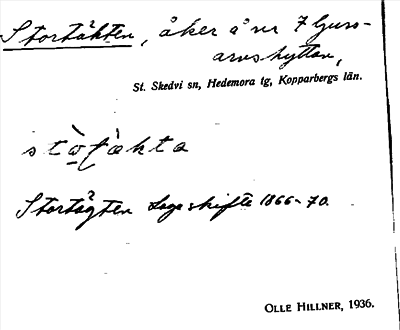 Stortäkten, åker å nr 7 Ljus-
arvshyttan,
St. Skedvi sn, Hedemora tg, Kopparbergs län.
Stortägten Laga skifte 1866-70.
OLLE HILLNER, 1936.